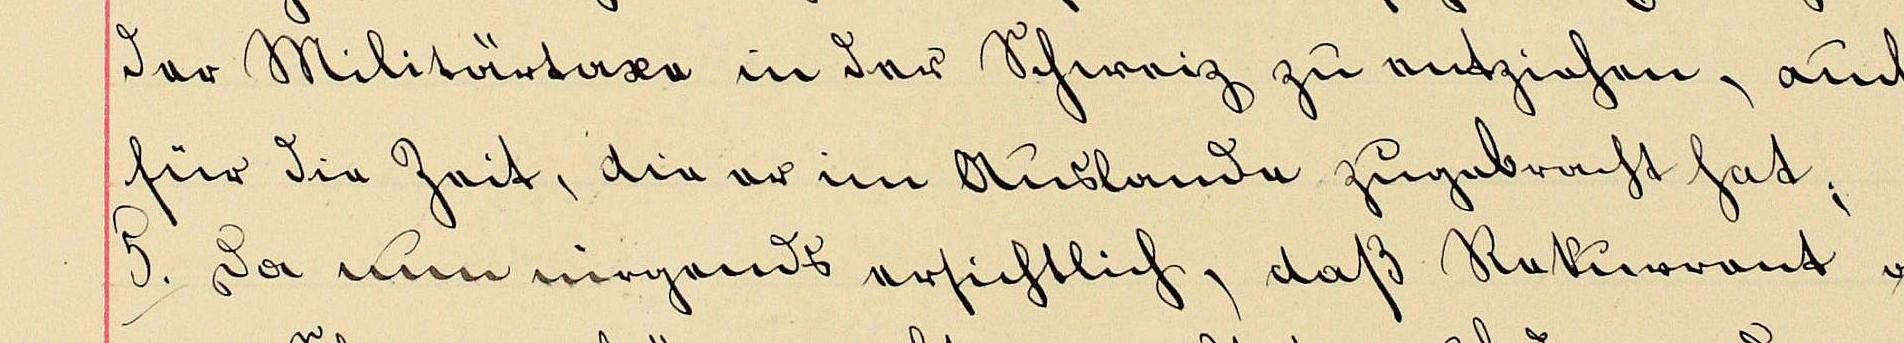 der Militärtaxe in der Schweiz zu entziehen, auch
für die Zeit, die er im Auslande zugebracht hat;
5. Da nun nirgends ersichtlich, daß Rekurrent